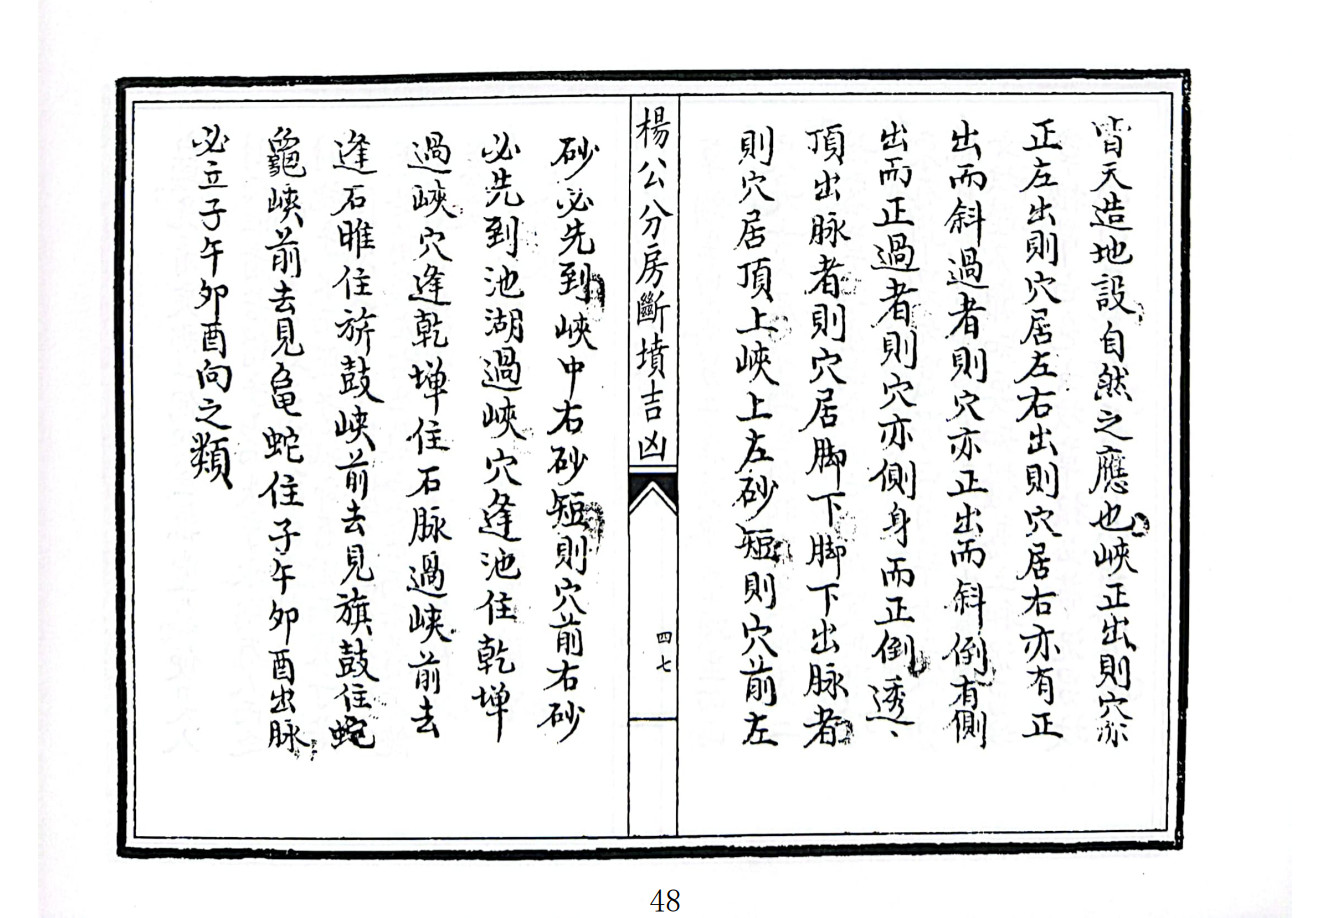 皆天造地設自然之應也峽正出則穴亦
正左出則穴居左右出則穴居右亦有正
出而斜過者則穴亦正出而斜倒有側
出而正過者則穴亦側身而正倒透、
頂出脉者則穴居脚下脚下出脉者
則穴居頂上峽上左砂短則穴前左
楊公分房斷墳吉凶
四七
砂必先到峽中右砂短則穴前右砂
必先到池湖過峽穴逢池住乾
過峽穴逢乾住石脉過峽前去
逢石住旂鼓峽前去見旗鼓住蛇
龜峽前去見龟蛇住子午卯酉出脉
必立子午卯酉向之類
48